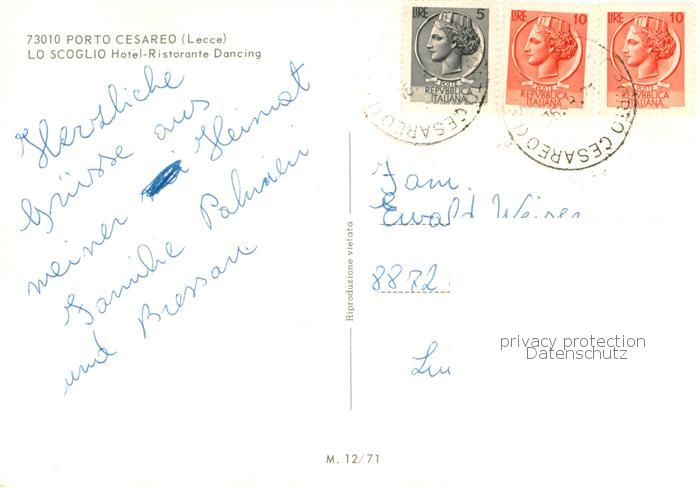 73010 PORTO CESAREO (Lecce)
LO SCOGLIO Hotel-Ristorante Dancing
Herzliche
Grüsse aus
meiner Heimat
Familie
und Bressan
Riproduzione vietata
LIRE 5
POSTE
REPVBBLICA
ITALIANA
LIRE 10
POSTE
REPVBBLICA
ITALIANA
LIRE 10
POSTE
REPVBBLICA
ITALIANA
PORTO CESAREO
Fam.
Ewald
8872
privacy protection
Datenschutz
M. 12/71